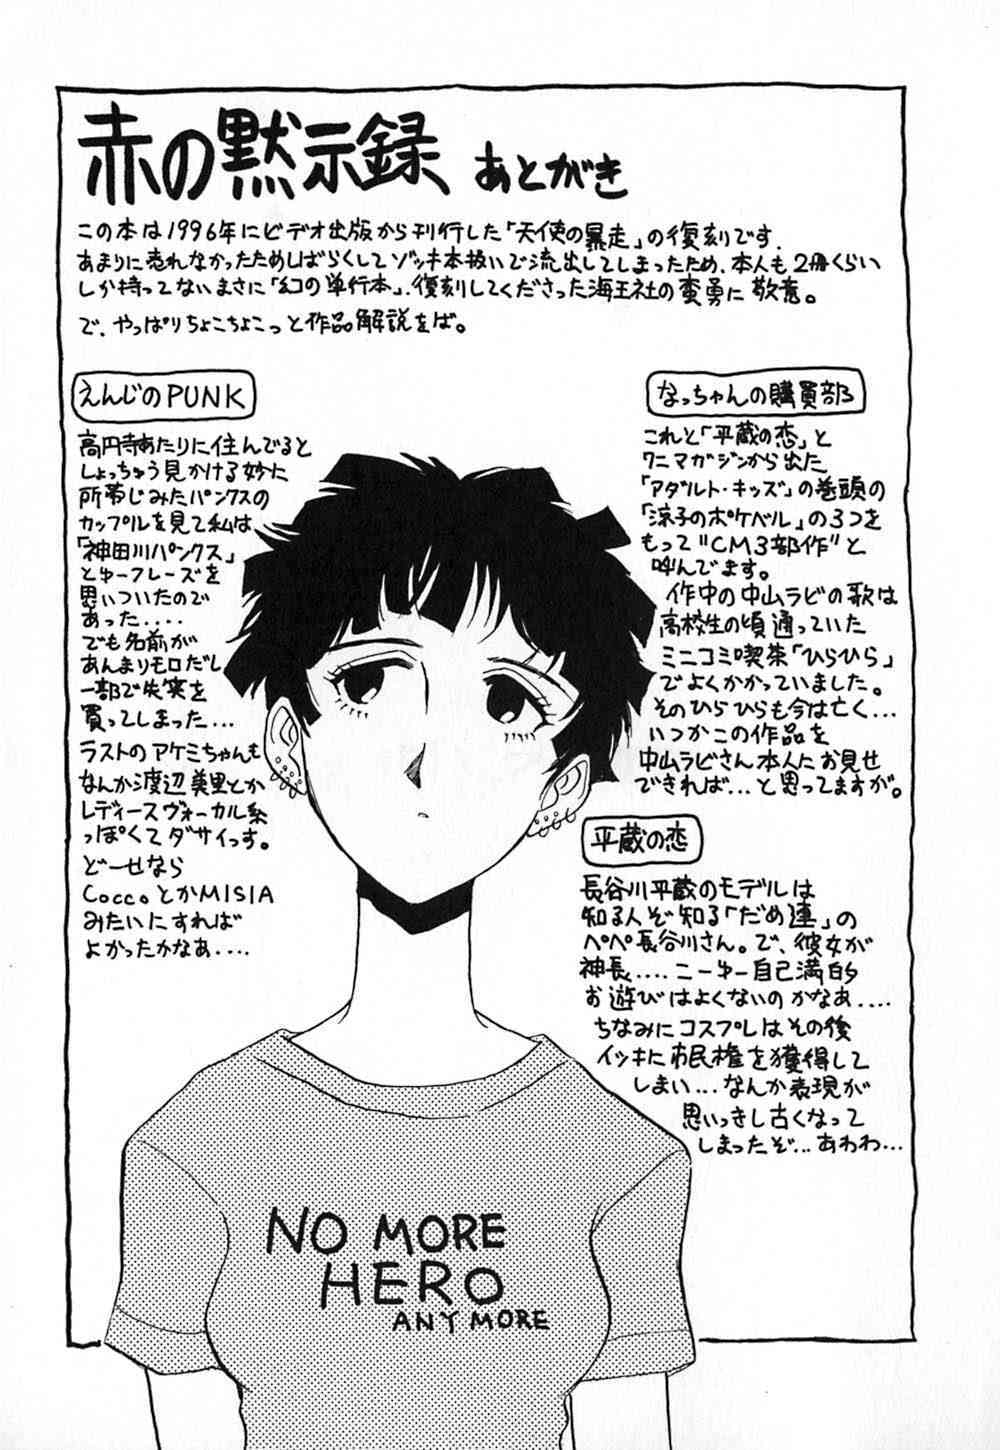 赤の黙示録、あとがき
この本は1996年にビデオ出版から刊行した「天使の暴走」の復刻です.
あまりに売れなかったためしばらくしてゾッキ本扱いで流出してしまったため、本人も2冊くらい
しか持ってないまさに「幻の単行本」.復刻してくださった海王社の蛮勇に敬意。
で、やっぱりちょこちょこっと作品解説をば。
えんじのPUNK
高円寺あたりに住んでると
しょっちゅう見かける妙に
所帯じみたパンクスの
カップルを見て私は
「神田川パンクス」
とゆーフレーズを
思いついたので
あった....
でも名前が
あんまりモロだし
一部で失笑を
買ってしまった...
ラストのアケミちゃんも
なんか渡辺美里とか
レディースヴォーカル系
っぽくてダサイっす。
どーせなら
CoccoとかMISIA
みたいにすれば
よかったかなあ....
なっちゃんの購買部
これと「平蔵の恋」と
ワニマガジンから出た
「アダルト・キッズ」の巻頭の
「涼子のポケベル」の3つを
もって"CM3部作"と
呼んでます。
作中の中山ラビの歌は
高校生の頃通っていた
ミニコミ喫茶「ひらひら」
でよくかかっていました。
そのひらひらも今は亡く...
いつかこの作品を
中山ラビさん本人にお見せ
できれば...と思ってますが。
平蔵の恋
長谷川平蔵のモデルは
知る人ぞ知る「だめ連」の
ペペ長谷川さん。で、彼女が
神長....こーゆー自己満的
お遊びはよくないのかなあ....
ちなみにコスプレはその後
イッキに市民権を獲得して
しまい...なんか表現が
思いっきし古くなって
しまったぞ...あわわ...
NO MORE
HERO
ANY MORE